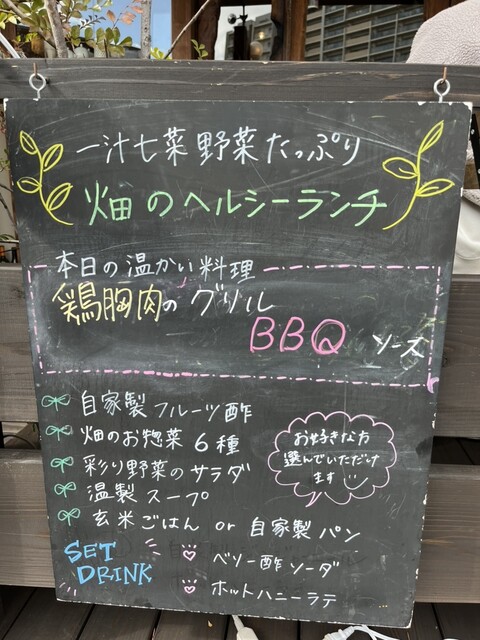 一汁七菜野菜たっぷり
畑のヘルシーランチ
本日の温かい料理
鶏胸肉のグリル
BBQ ソース
自家製フルーツ酢
畑のお惣菜 6種
彩り野菜のサラダ
温製スープ
玄米ごはん or 自家製パン
お好きな方
選んでいただけ
ます
SET
DRINK
ベリー酢ソーダ
ホットハニーラテ